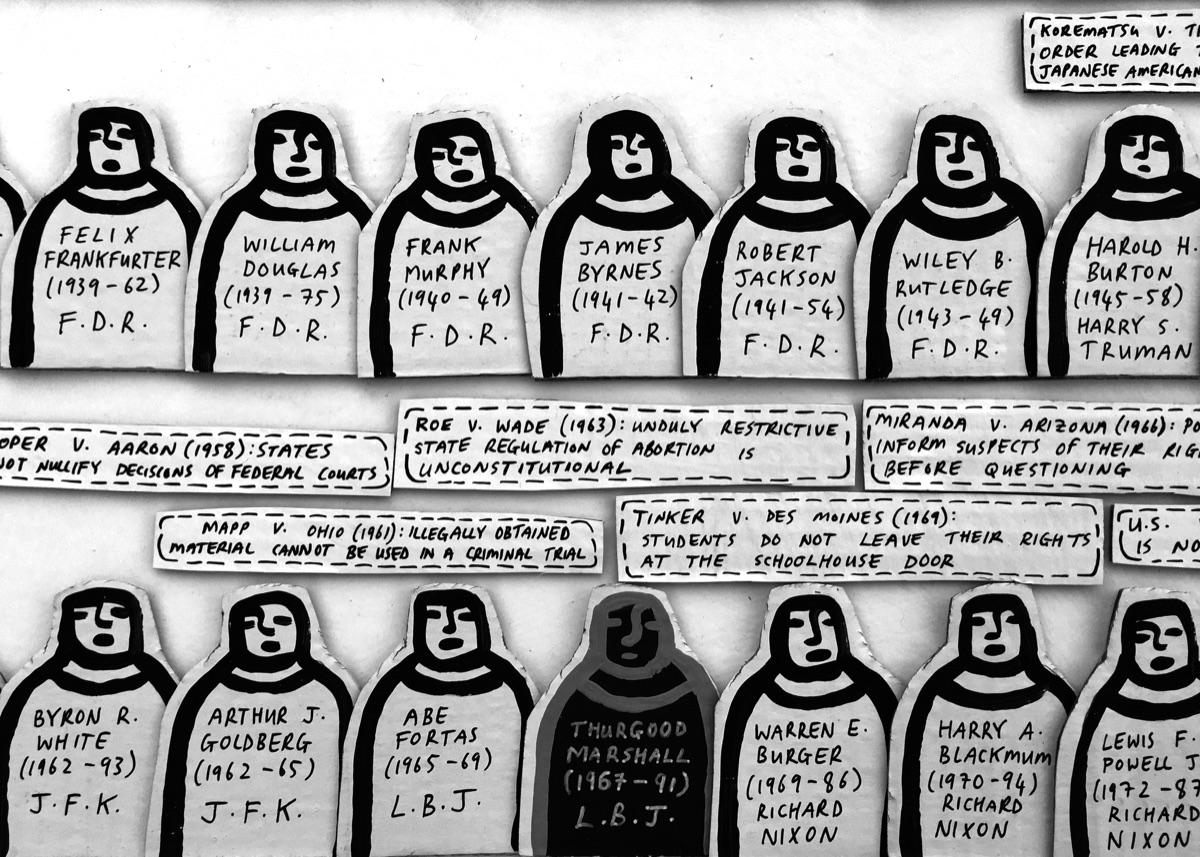 KOREMATSU V.
ORDER LEADING
JAPANESE AMERICAN
FELIX
FRANKFURTER
(1939-62)
F.D.R.
WILLIAM
DOUGLAS
(1939-75)
F.D.R.
FRANK
MURPHY
(1940-49)
F.D.R.
JAMES
BYRNES
(1941-42)
F.D.R.
ROBERT
JACKSON
(1941-54)
F.D.R.
WILEY B.
RUTLEDGE
(1943-49)
F.D.R.
HAROLD H.
BURTON
(1945-58)
HARRY S.
TRUMAN
V. AARON (1958): STATES
NULLIFY DECISIONS OF FEDERAL COURTS
ROE V. WADE (1963): UNDULY RESTRICTIVE
STATE REGULATION OF ABORTION IS
UNCONSTITUTIONAL
MIRANDA V. ARIZONA (1966):
INFORM SUSPECTS OF THEIR
BEFORE QUESTIONING
MAPP V. OHIO (1961): ILLEGALLY OBTAINED
MATERIAL CANNOT BE USED IN A CRIMINAL TRIAL
TINKER V. DES MOINES (1969):
STUDENTS DO NOT LEAVE THEIR RIGHTS
AT THE SCHOOLHOUSE DOOR
U.S.
IS
BYRON R.
WHITE
(1962-93)
J.F.K.
ARTHUR J.
GOLDBERG
(1962-65)
J.F.K.
ABE
FORTAS
(1965-69)
L.B.J.
THURGOOD
MARSHALL
(1967-91)
L.B.J.
WARREN E.
BURGER
(1969-86)
RICHARD
NIXON
HARRY A.
BLACKMUM
(1970-94)
RICHARD
NIXON
LEWIS F.
POWELL J
(1972-87
RICHARD
NIXON